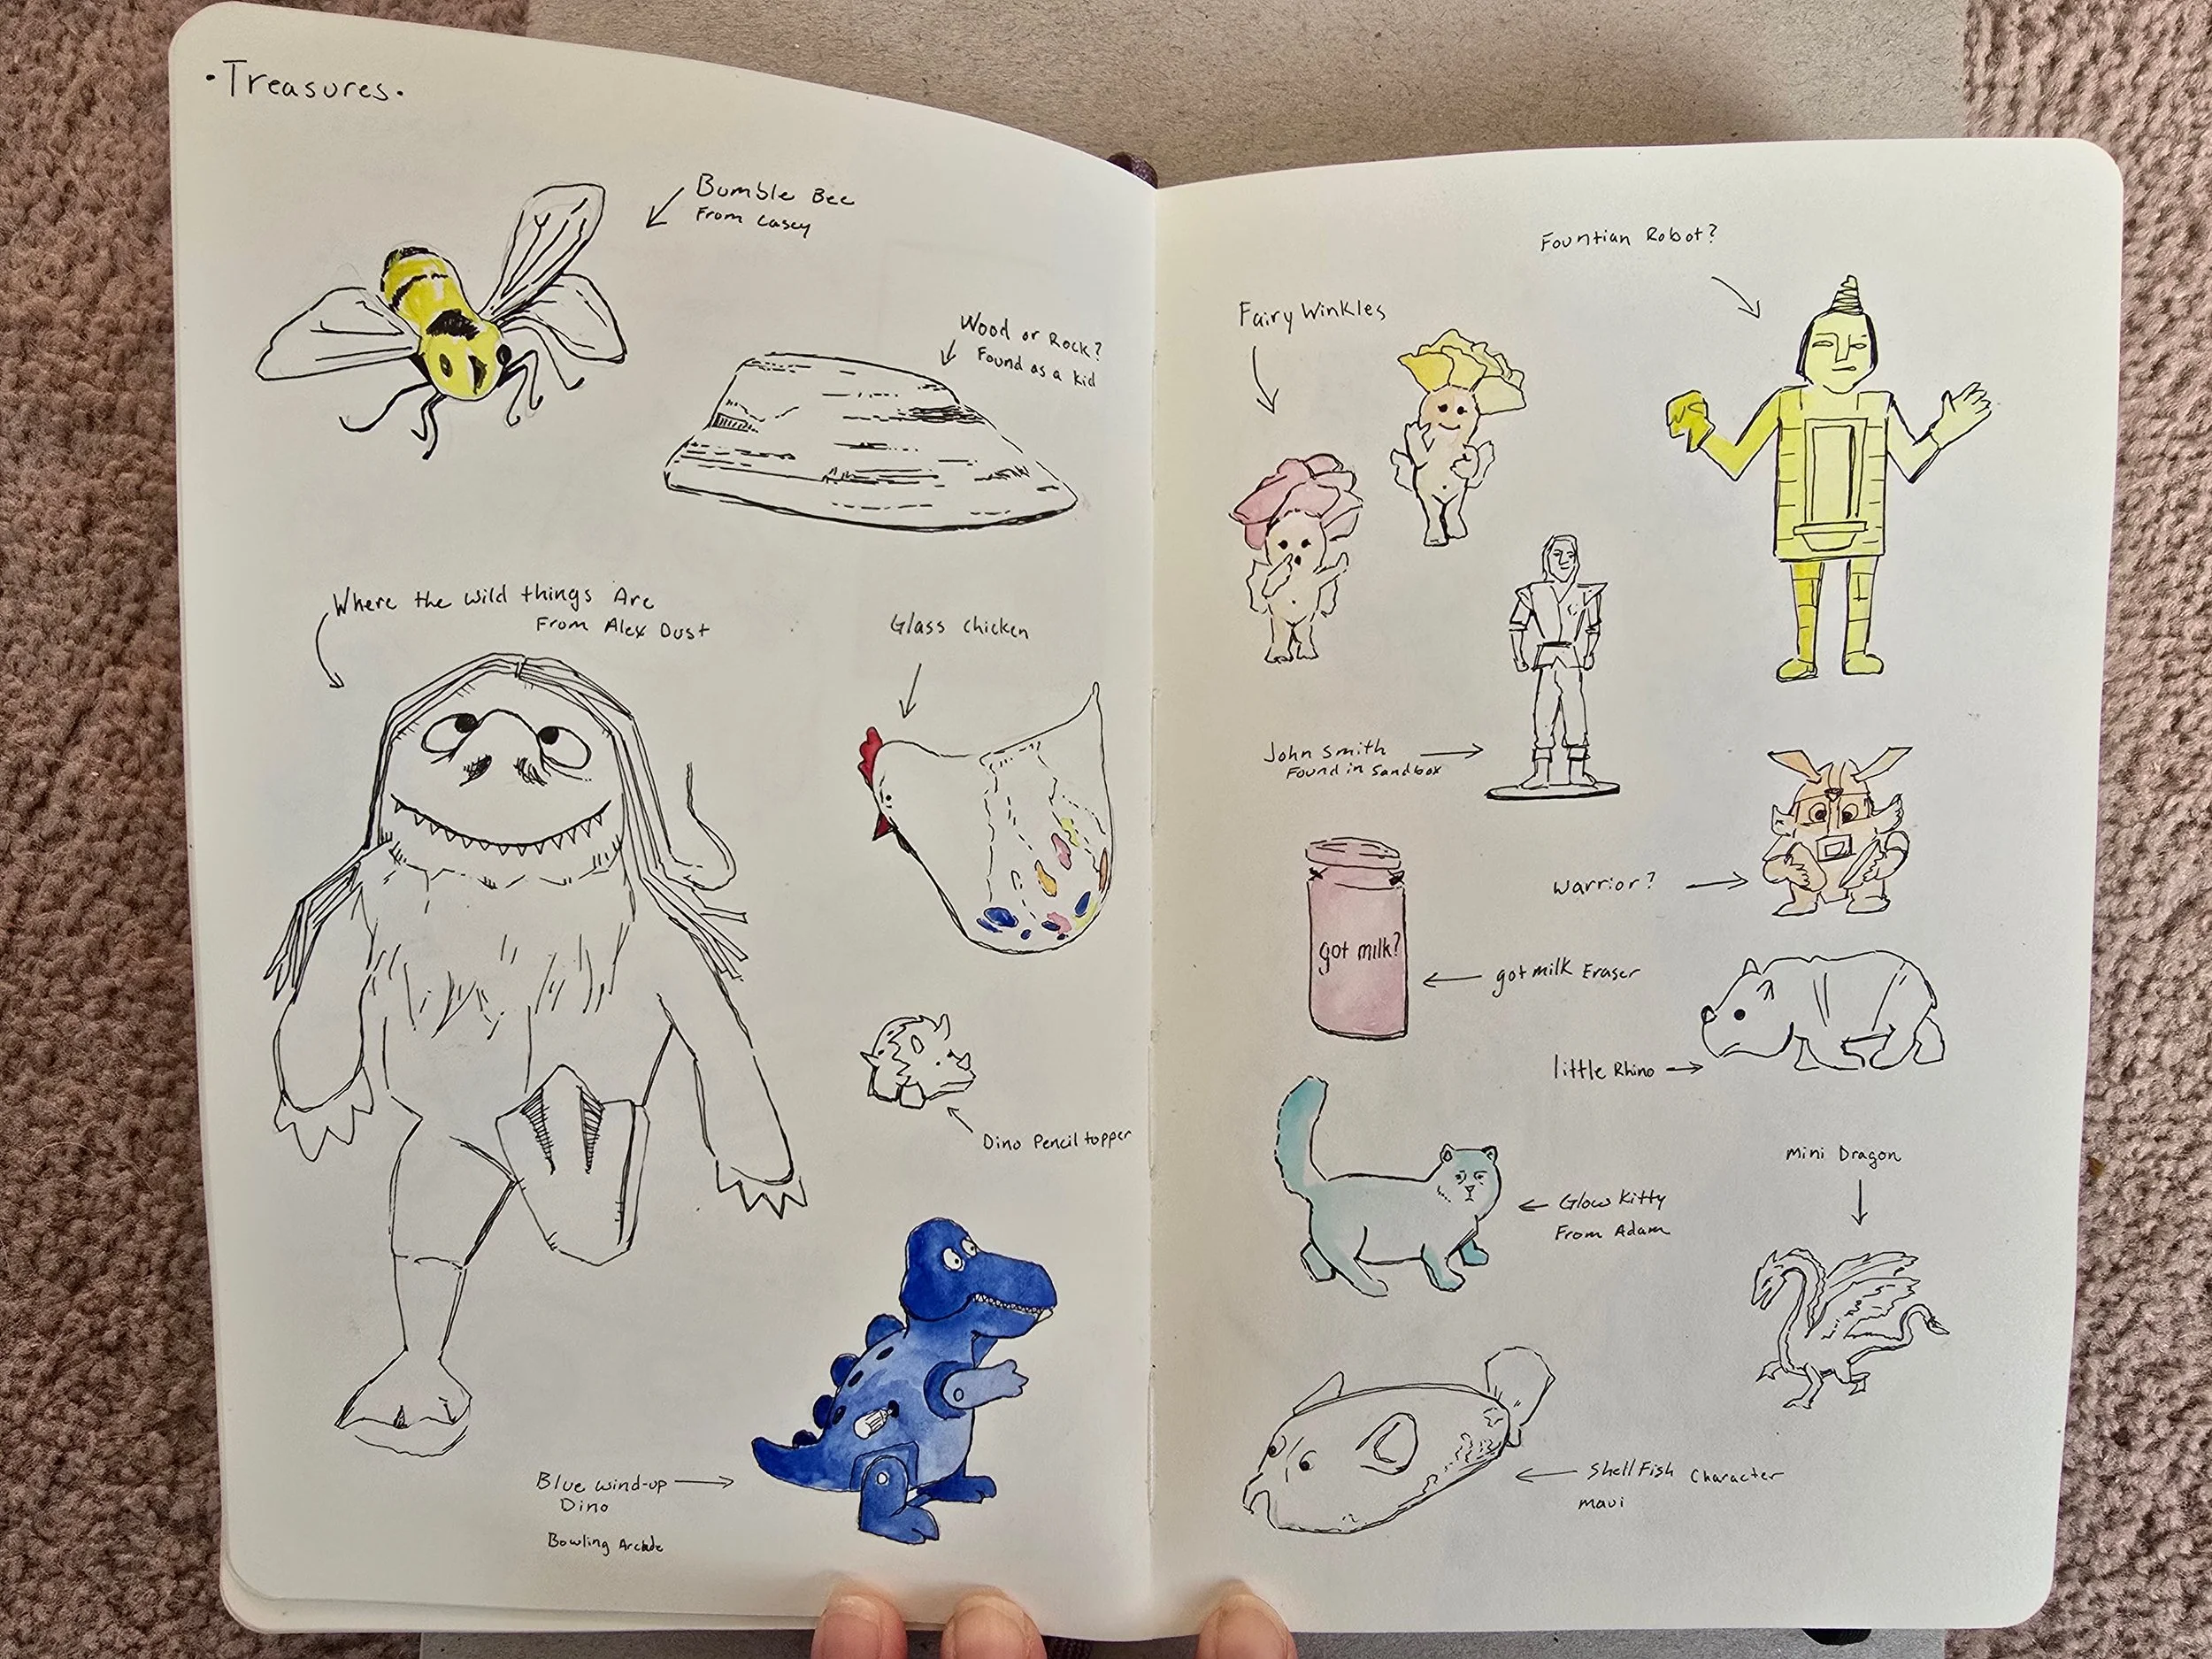 ·Treasures·
Bumble Bee
From Casey
Wood or Rock?
Found as a kid
Where the wild things Are
From Alex Dust
Glass chicken
Dino Pencil topper
Blue wind-up
Dino
Bowling Arcade
Fountian Robot?
Fairy Winkles
John Smith
Found in Sandbox
Warrior?
got milk?
got milk Eraser
little Rhino
Glow Kitty
From Adam
mini Dragon
Shell Fish Character
maui